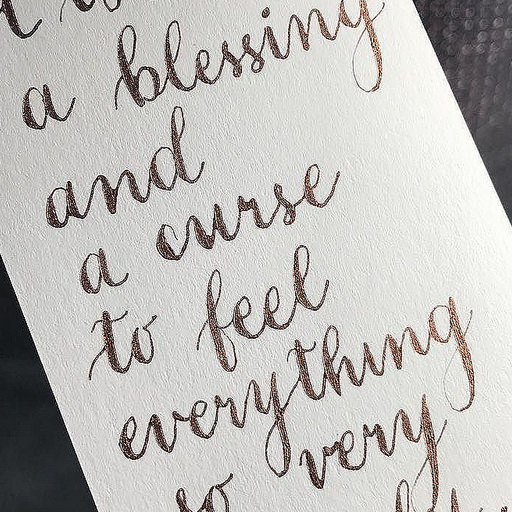 a blessing
and
a curse
to feel
everything
so very